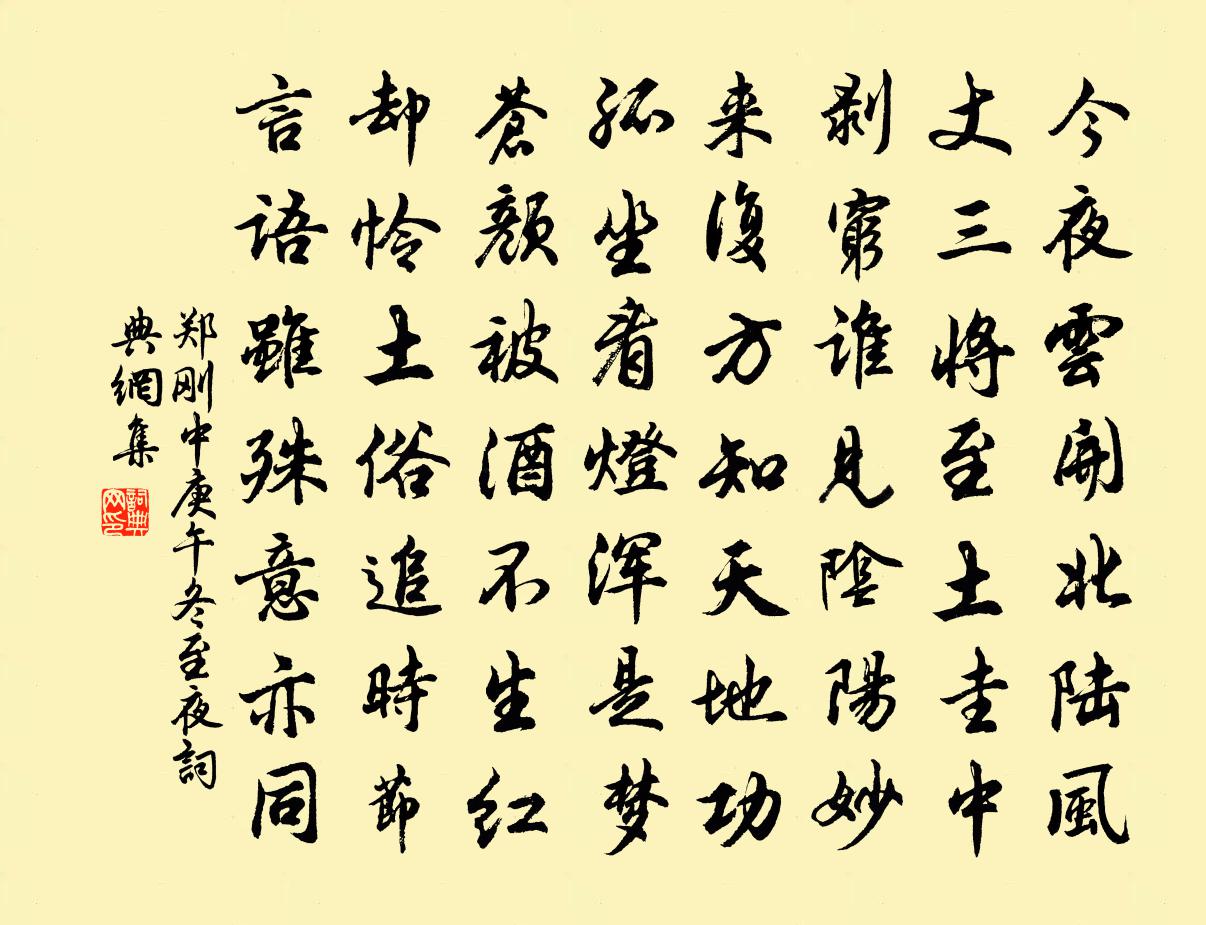 今夜雲開北陆風
丈三將至土圭中
剥窮誰見陰陽妙
来復方知天地功
孤坐看燈浑是梦
蒼顏被酒不生红
却怜土俗追時節
言语雖殊意亦同
郑刚中庚午冬至夜詞
典網集
詞典
网印